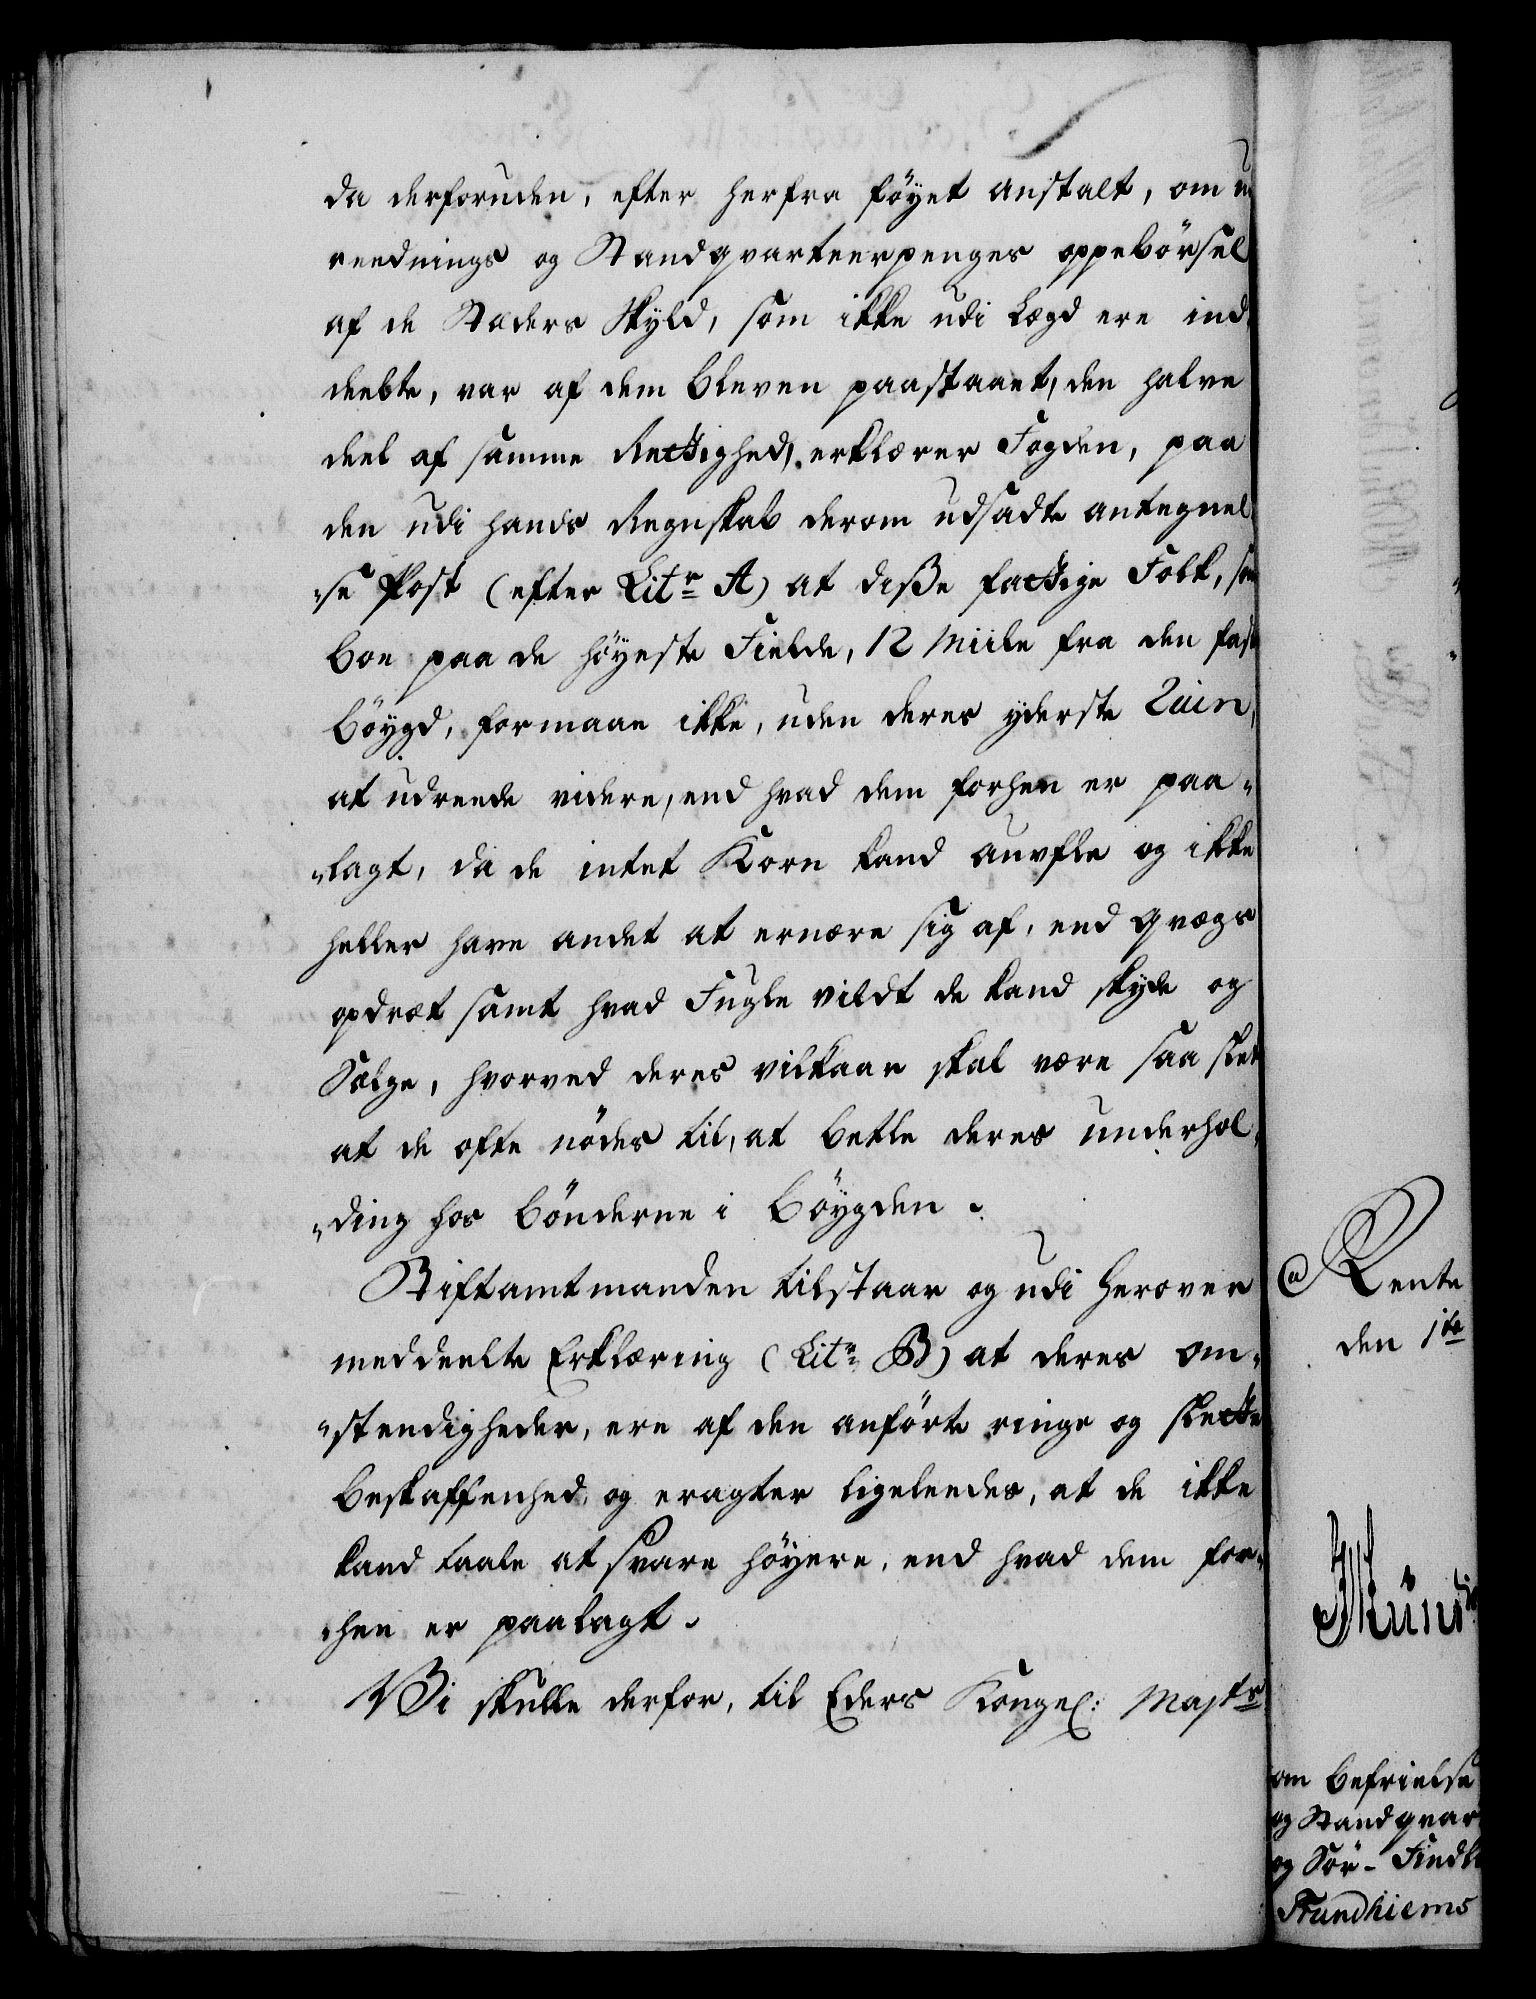 da derforuden, efter herfra föyet anstalt, om u
reednings og Standqvarteerpenges oppebörsel
af de Stæders Skyld, som ikke udi Lægd ere ind„
deelte, var af dem bleven paastaaet, den halve
deel af samme Rettighed, erklærer Fogden, paa
den udi hands Regnskab derom udsadte antegnel„
„se Post (efter Litr A) at diße fattige Folk, som
boe paa de höyeste Fielde, 12 Miile fra den fast
Böygd, formaae ikke, uden deres yderste Ruin,
at udreede videre, end hvad dem forhen er paa„
„lagt, da de intet Korn kand auvfle og ikke
heller have andet at ernære sig af, end qvægs
opdræt samt hvad Fugle vildt de kand skyde og
Sælge, hvorved deres vilkaar skal være saa slet
at de ofte nödes til, at betle deres underhol„
„ding hos bönderne i Böygden.
Stiftamtmanden tilstaar og udi herover
meddeelte Erklæring (Litr B) at deres om„
„stendigheder, ere af den anförte ringe og slette
beskaffenhed, og eragter ligeleedes, at de ikke
kand taale at svare höyere, end hvad dem for„
„hen er paalagt.
Vi skulle derfor, til Eders Kongel: Majts
Rente
den 1te
om befrielse
og Standqvar
og Sör-Findl
Trundhiems